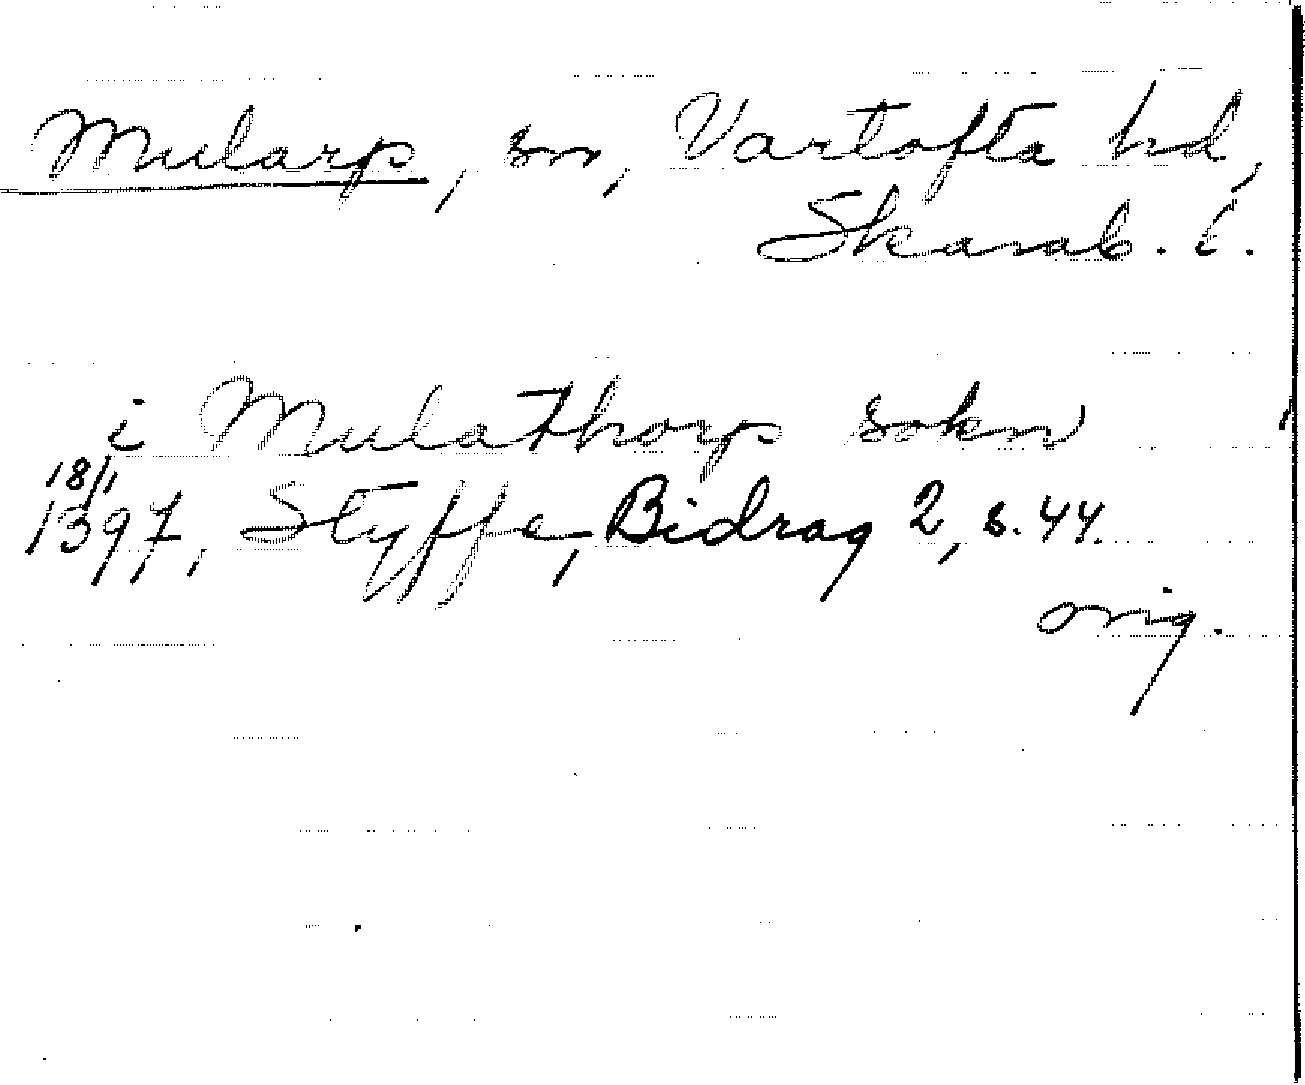 Mularp, sn, Vartofta hd,
Skarab. l.
i Mulathorp sokn
18/1
1397, Styffe, Bidrag 2, s. 44.
orig.